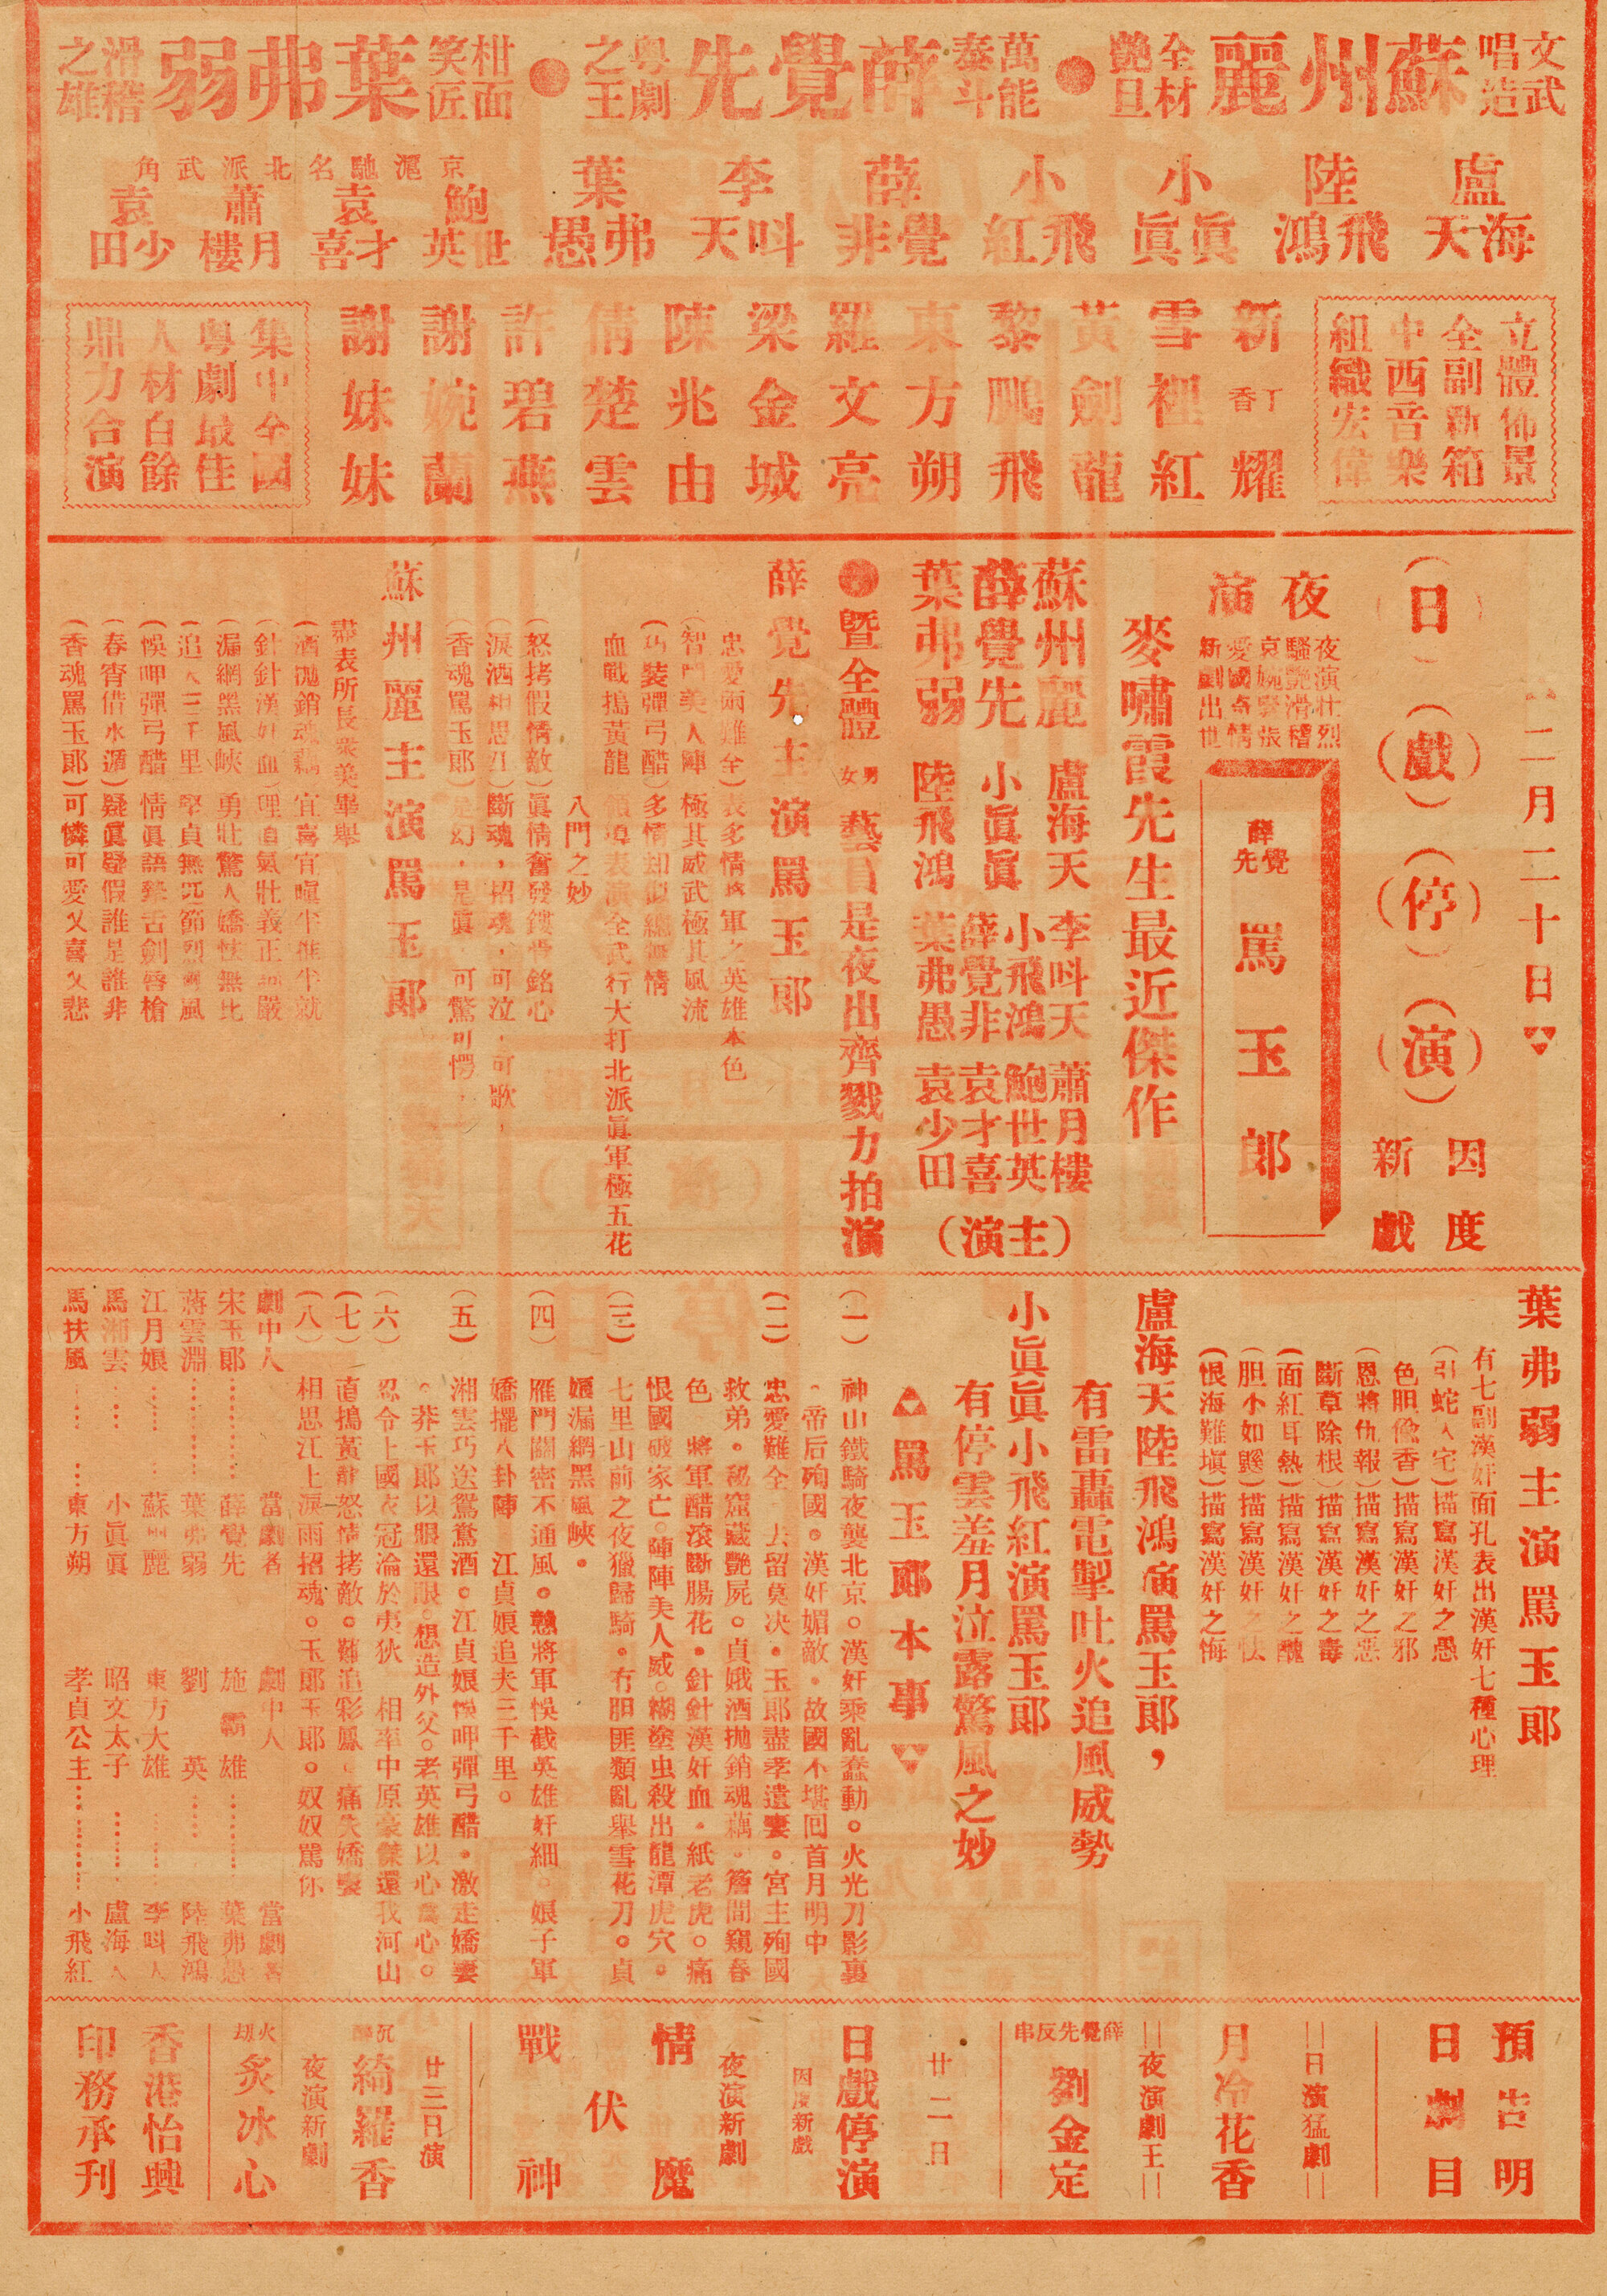 文武
唱造
蘇州麗
全材
艷旦
●
萬能
泰斗
薛覺先
粤劇
之王
●
柑面
笑匠
葉弗弱
滑稽
之雄
盧海天
陸飛鴻
小眞眞
小飛紅
薛覺非
李呌天
葉弗愚
京滬馳名北派武角
鮑世英
袁才喜
蕭月樓
袁少田
立體佈景
全副新箱
中西音樂
組織宏偉
新丁香耀
雪裡紅
黃劍龍
黎鵬飛
東方朔
羅文亮
梁金城
陳兆由
倩楚雲
許碧燕
謝婉蘭
謝妹妹
集中全國
粤劇最佳
人材百餘
鼎力合演
二月二十日
(日)(戲)(停)(演)
因度
新戲
夜演
夜演壯烈
騷艷滑稽
哀婉緊張
愛國奇情
新劇出世
薛覺先
罵玉郎
麥嘯霞先生最近傑作
蘇州麗 盧海天 李呌天 蕭月樓
薛覺先 小眞眞 小飛鴻 鮑世英
薛覺非 袁才喜
葉弗弱 陸飛鴻 葉弗愚 袁少田
(主演)
●暨全體男女藝員是夜出齊戮力拍演
薛覺先主演罵玉郎
(忠愛兩難全)表多情將軍之英雄本色
(智鬥美人陣)極其威武極其風流
(巧裝彈弓醋)多情却似總無情
(血戰搗黃龍)領導表演全武行大打北派眞軍極五花
八門之妙
(怒拷假情敵)眞情奮發鏤骨銘心
(淚洒相思江)斷魂，招魂，可泣，可歌，
(香魂罵玉郞)是幻，是眞，可驚可愕，
蘇州麗主演罵玉郎
盡表所長衆美畢舉
(酒拋銷魂藕)宜喜宜嗔半推半就
(針針漢奸血)理直氣壯義正詞嚴
(漏網黑風峽)勇壯驚人嬌怯無比
(追夫三千里)堅貞無匹節烈可風
(悞呷彈弓醋)情眞語摯舌劍唇槍
(春宵借水遁)疑眞疑假誰是誰非
(香魂罵玉郞)可憐可愛又喜又悲
葉弗弱主演罵玉郎
有七副漢奸面孔表出漢奸七種心理
(引蛇入宅)描寫漢奸之愚
(色胆偸香)描寫漢奸之邪
(恩將仇報)描寫漢奸之惡
(斷草除根)描寫漢奸之毒
(面紅耳熱)描寫漢奸之醜
(胆小如鼷)描寫漢奸之怯
(恨海難塡)描寫漢奸之悔
盧海天陸飛鴻演罵玉郎，
有雷轟電掣吐火追風威勢
小眞眞小飛紅演罵玉郎
有停雲羞月泣露驚風之妙
罵玉郎本事
(一)神山鐵騎夜襲北京。漢奸乘亂蠢動。火光刀影裏
。帝后殉國。漢奸媚敵。故國不堪回首月明中
(二)忠愛難全 去留莫決。玉郎盡孝遣妻。宮主殉國
救弟。秘窟藏艷屍。貞娥酒拋銷魂藕。簷間窺春
色 將軍醋滾斷腸花。針針漢奸血。紙老虎。痛
恨國破家亡。陣陣美人威。糊塗虫殺出龍潭虎穴。
(三)七里山前之夜獵歸騎。冇胆匪類亂舉雪花刀。貞
娘漏網黑風峽。
(四)雁門關密不通風。戇將軍悞截英雄奸細。娘子軍
嬌擺八卦陣 江貞娘追夫三千里。
(五)湘雲巧送鴛鴦酒。江貞娘悞呷彈弓醋。激走嬌妻
。莽玉郎以眼還眼。想造外父。老英雄以心爲心。
(六)忍令上國衣冠淪於夷狄 相率中原豪傑還我河山
(七)直搗黃龍怒情拷敵。難追彩鳳。痛失嬌妻
(八)相思江上淚雨招魂。玉郎玉郎。奴奴罵你
劇中人 當劇者 劇中人 當劇者
宋玉郎………薛覺先 施霸雄………葉弗愚
蔣雲淵………葉弗弱 劉英………陸飛鴻
江月娘………蘇州麗 東方大雄………李呌天
馬湘雲………小眞眞 昭文太子………盧海天
馬扶風………東方朔 孝貞公主………小飛紅
預告明
日劇目
═日演猛劇═
月冷花香
═夜演劇王═
薛覺先反串
劉金定
廿二日
日戲停演
因度新戲
夜演新劇
情魔
伏
戰神
廿三日演
沉醉
綺羅香
夜演新劇
火刧
炙冰心
香港怡興
印務承刊